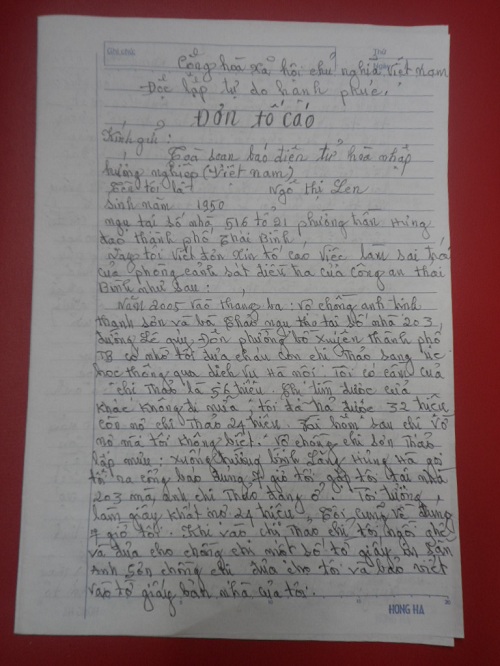 Cộng hoà xã hội chủ nghĩa Việt Nam
Độc lập tự do hạnh phúc
Đơn tố cáo
Kính gửi:
Toà soạn báo điện tử hoà nhập
hướng nghiệp (Việt nam)
Tên tôi là Ngô thị Len
Sinh năm 1950
ngụ tại số nhà 516 tổ 21 phường trần Hưng
đạo thành phố Thái Bình
Nay tôi viết đơn xin tố cáo việc làm sai trái
của phòng cảnh sát điều tra của công an thái
Bình như sau:
Năm 2005 vào tháng ba: vợ chồng anh
thanh sơn và bà thảo ngụ tại số nhà 203
đường Lê quý Đôn phường bồ xuyên thành phố
TB có nhờ tôi đưa cháu con chị Thảo sang
học thông qua dịch vụ Hà nội. Tôi có cầm của
chị Thảo là 56 triệu. khi tìm được cửa
khác không đi nữa, tôi đã trả được 32 triệu
còn nợ chị Thảo 24 triệu. hôm sau chị vỡ
nợ mà tôi không biết. vợ chồng chị Sơn Thảo
lập mưu: xuống Hưng Hà gọi
tôi ra cổng bảo đúng 7 giờ tối gặp tôi tại nhà
203 mà anh chị Thảo đang ở. Tôi tưởng
làm giấy khất nợ 24 triệu, tôi cũng về đúng
7 giờ tối. Khi vào chị Thảo chỉ tôi ngồi ghế
và đưa cho chồng chị một số tờ giấy
Anh Sơn chồng chị đưa cho tôi và bảo viết
vào tờ giấy bán nhà của tôi.
HONG HA